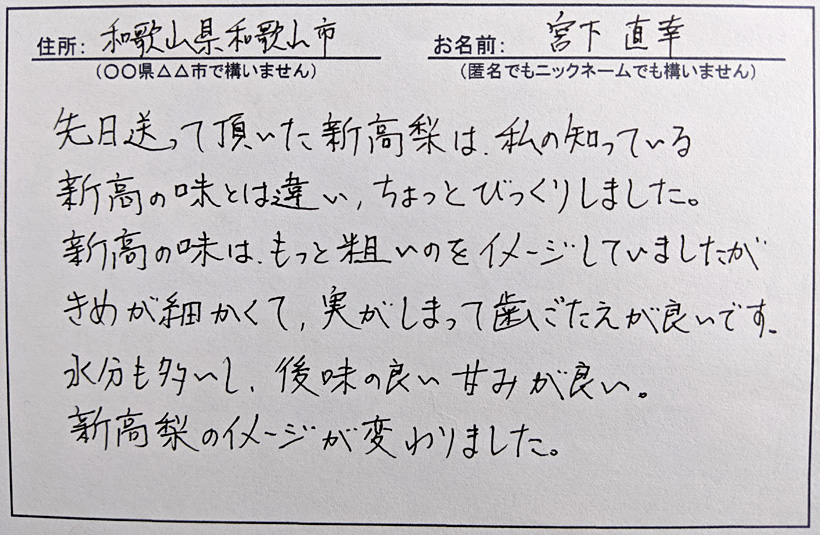 住所: 和歌山県和歌山市 お名前: 宮下 直幸
(〇〇県△△市で構いません) (匿名でもニックネームでも構いません)
先日送って頂いた新高梨は、私の知っている
新高の味とは違い、ちょっとびっくりしました。
新高の味は、もっと粗いのをイメージしていましたが
きめが細かくて、実がしまって歯ごたえが良いです。
水分も多いし、後味の良い甘みが良い。
新高梨のイメージが変わりました。